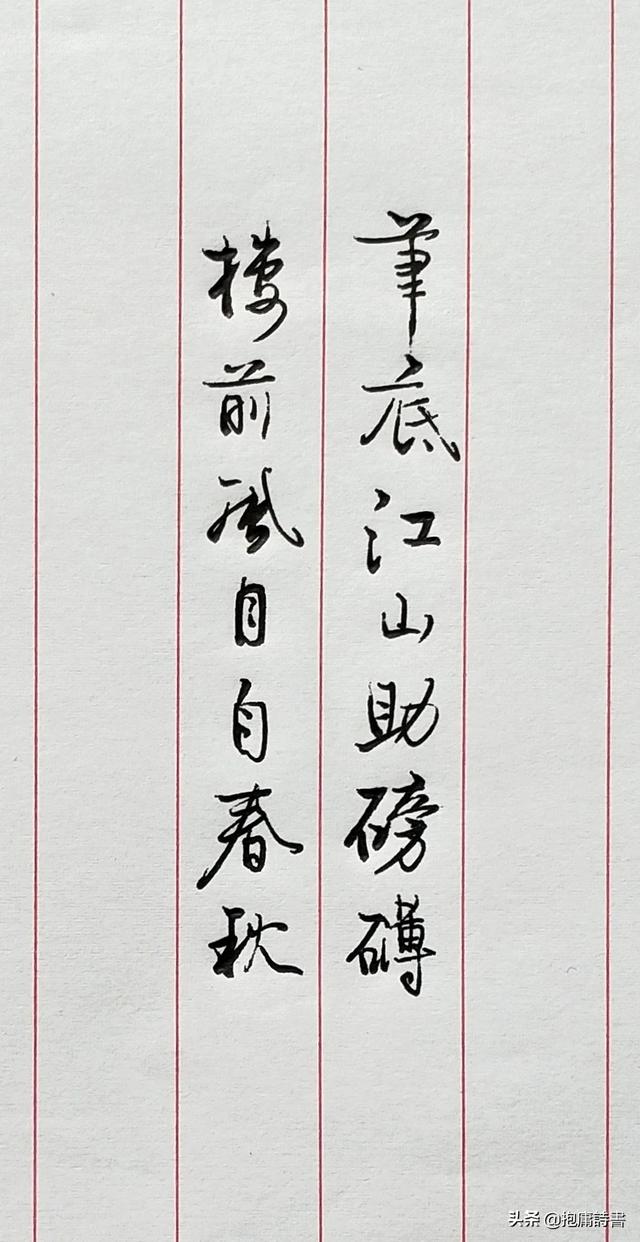 筆底江山助磅礴
樓前風日自春秋
头条 @抱庸詩書